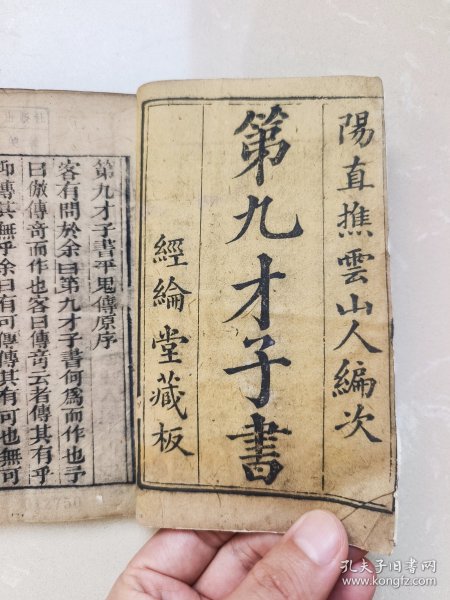 陽直樵雲山人編次
第九才子書
經綸堂藏板
第九才子書平鬼傳原序
客有問於余曰第九才子書何爲而作也予
曰倣傳竒而作也客曰傳竒云者傳其有乎
抑傳其無乎余曰有可傳傳其有可也無可
孔夫子旧书网
www.kongfz.com